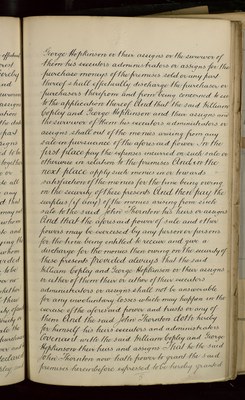 George Hopkinson or their assigns or the survivor of
them his executors administrators or assigns for the
purchase moneys of the premises sold or any part
thereof shall effectually discharge the purchaser or
purchasers therefrom and from being concerned to see
to the application thereof And that the said William
Copley and George Hopkinson and their assigns and
the survivor of them his executors administrators or
assigns shall out of the monies arising from any
sale in pursuance of the aforesaid power in the
first place pay the expenses incurred on such sale or
otherwise in relation to the premises And in the
next place apply such monies in or towards
satisfaction of the monies for the time being owing
on the security of these presents And then pay the
surplus (if any) of the monies arising from such
sale to the said John Thornton his heirs or assigns
And that the aforesaid power of sale and other
powers may be exercised by any person or persons
for the time being entitled to receive and give a
discharge for the monies then owing on the security of
these presents Provided always that the said
William Copley and George Hopkinson or their assigns
or either of them their or either of their executors
administrators or assigns shall not be answerable
for any involuntary losses which may happen in the
exercise of the aforesaid power and trusts or any of
them And the said John Thornton doth hereby
for himself his heirs executors and administrators
Covenant with the said William Copley and George
Hopkinson their heirs and assigns That he the said
John Thornton now hath power to grant the said
premises hereinbefore expressed to be hereby granted